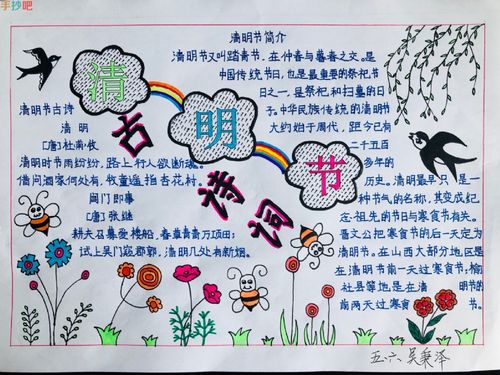 手抄吧
清明节简介
清明节又叫踏青节，在仲春与暮春之交。是
中国传统节日，也是最重要的祭祀节
日之一，是祭祀和扫墓的日
子。中华民族传统的清明节
大约始于周代，距今已有
二千五百
多年的
历史。清明最早只是一
种节气的名称，其变成纪
念祖先的节日与寒食节有关。
晋文公把寒食节的后一天定为
清明节。在山西大部分地区是
在清明节前一天过寒食节，榆
社县等地是在清明节的
前两天过寒食节。
清明节
古诗词
清明节古诗
清明
[唐]杜甫牧
清明时节雨纷纷，路上行人欲断魂。
借问酒家何处有，牧童遥指杏花村。
闾门即事
[唐]张继
耕夫召募爱楼船，春草青青万项田；
试上吴门窥郡郭，清明几处有新烟。
五.六 吴秉泽